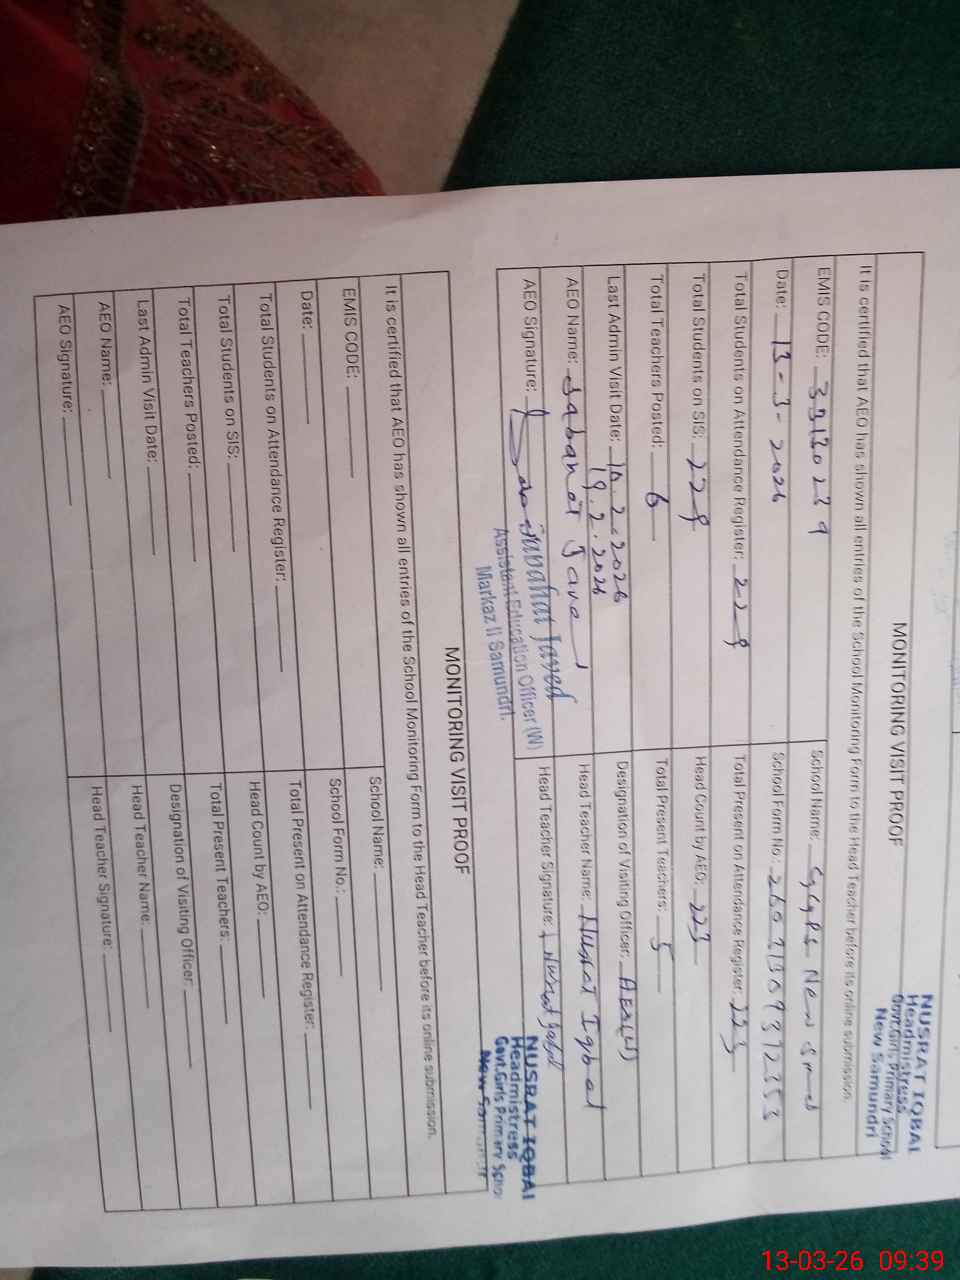 MONITORING VISIT PROOF
NUSRAT IQBAL
Headmistress
Govt.Girls Primary School
New Samundri
It is certified that AEO has shown all entries of the School Monitoring Form to the Head Teacher before its online submission.
EMIS CODE: 33130239
School Name: GGPS New
Date: 13-3-2026
School Form No.:
Total Students on Attendance Register: 229
Total Present on Attendance Register: 223
Total Students on SIS: 229
Head Count by AEO: 223
Total Teachers Posted: 6
Total Present Teachers: 5
Last Admin Visit Date: 2.2026
19.2.2026
Designation of Visiting Officer:
AEO Name: Sabahat Javed
Head Teacher Name: Nusrat Iqbal
AEO Signature:
Head Teacher Signature: Nusrat Iqbal
Sabahat Javed
Assistant Education Officer (W)
Markaz II Samundri.
NUSRAT IQBAL
Headmistress
Govt.Girls Primary School
New Samundri
MONITORING VISIT PROOF
It is certified that AEO has shown all entries of the School Monitoring Form to the Head Teacher before its online submission.
EMIS CODE:
School Name:
Date:
School Form No.:
Total Students on Attendance Register:
Total Present on Attendance Register:
Total Students on SIS:
Head Count by AEO:
Total Teachers Posted:
Total Present Teachers:
Last Admin Visit Date:
Designation of Visiting Officer:
AEO Name:
Head Teacher Name:
AEO Signature:
Head Teacher Signature:
13-03-26 09:39